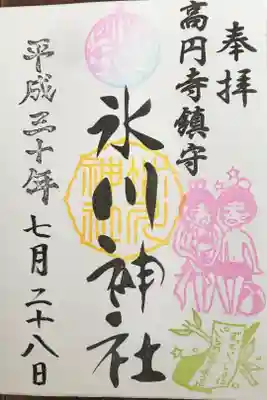 奉拝
高円寺鎮守
氷川神社
平成三十年 七月二十八日